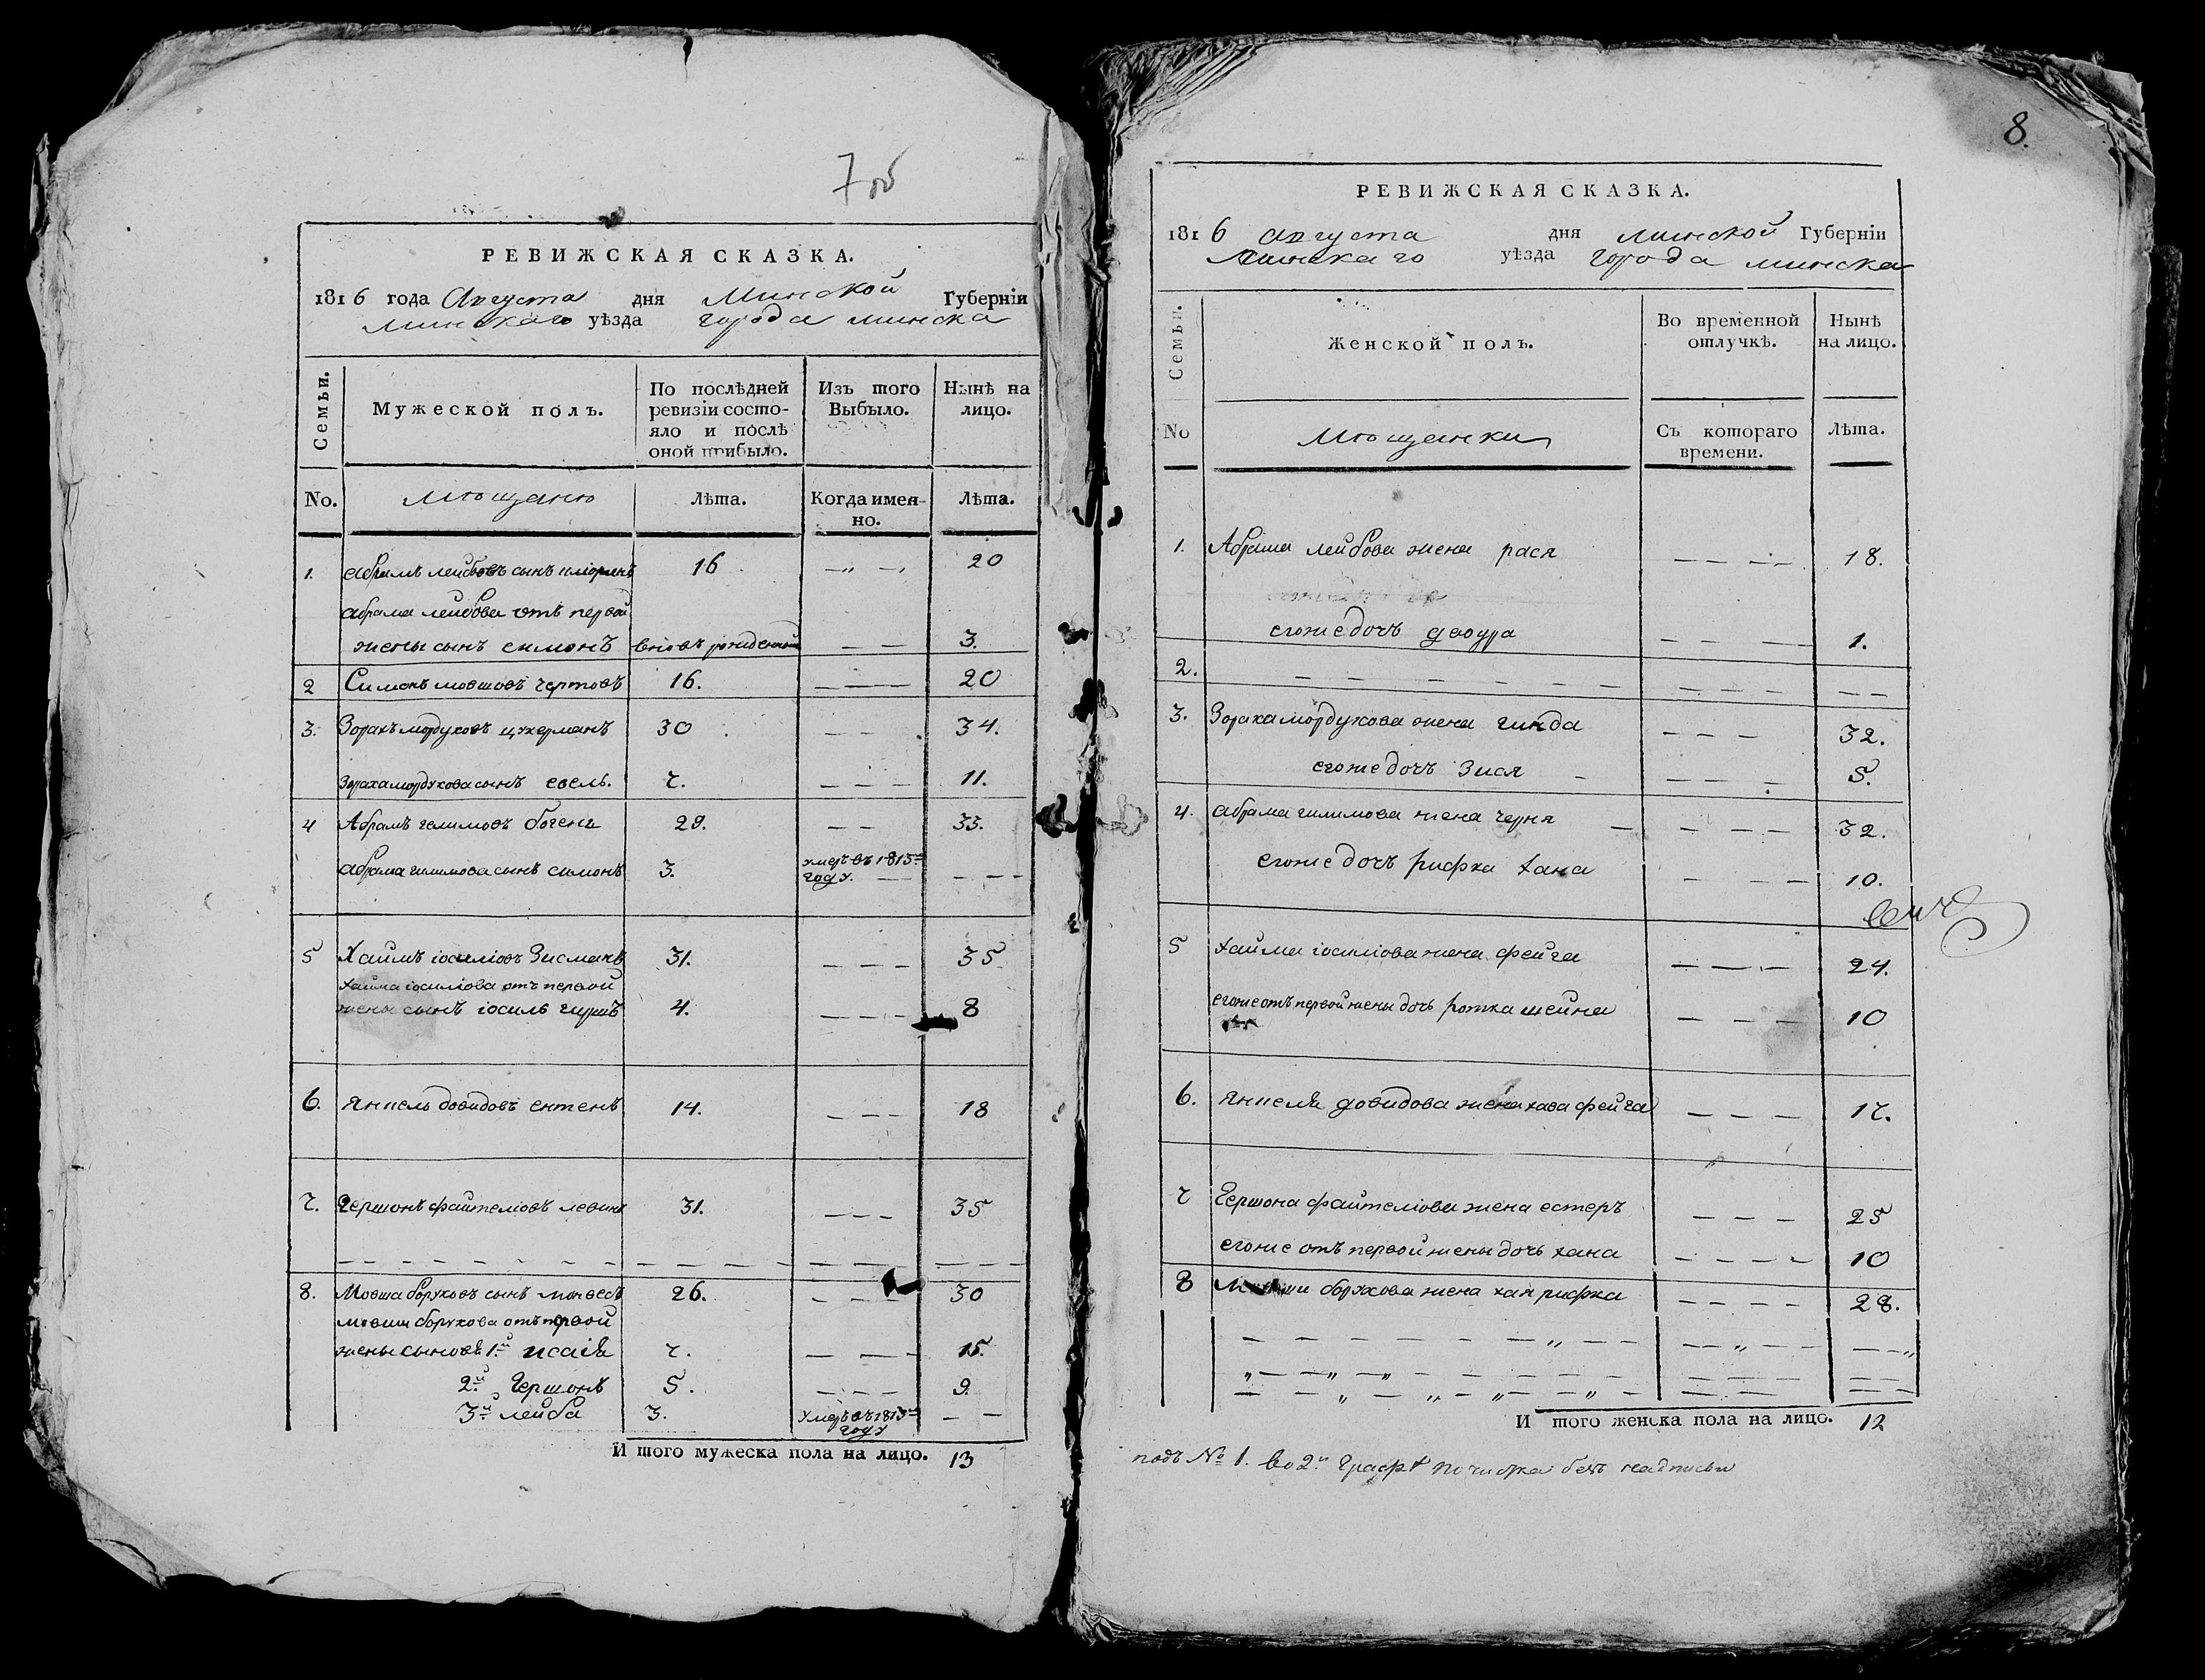 7 об
РЕВИЖСКАЯ СКАЗКА.
1816 года Августа дня Минской Губерніи
Минскаго уѣзда города минска
Семьи. Мужеской полъ. По послѣдней ревизіи состояло и послѣ оной прибыло. Изъ того Выбыло. Нынѣ на лицо.
No. мѣщане Лѣта. Когда именно. Лѣта.
1. абрамъ лейбовъ сынъ 16 20
абрама лейбова отъ первой
жены сынъ симонъ вновь рожденный 3.
2 Симонъ мовшовъ 16. 20
3. Зорахъ мордуховъ цукерманъ 30 34.
Зораха мордухова сынъ евель. 7. 11.
4 Абрамъ гелимовъ 29. 33.
абрама гилимова сынъ симонъ 3. умеръ въ 1815м году.
5 Хаимъ іосиліовъ Зисманъ 31. 35
хаима іосиліова отъ первой
жены сынъ іосиль гиршъ 4. 8
6. Янкель довидовъ ентенъ 14. 18
7. Гершонъ файтеліовъ левинъ 31. 35
8. Мовша боруховъ сынъ 26. 30
мовши борухова отъ первой
жены сыновя 1й исаія 7. 15.
2й Гершонъ 5. 9.
3й лейба 3. умеръ въ 1813м году
И того мужеска пола на лицо. 13
8.
РЕВИЖСКАЯ СКАЗКА.
1816 августа дня минской Губерніи
Минскаго уѣзда города минска
Семьи. Женской полъ. Во временной отлучкѣ. Нынѣ на лицо.
No мѣщанки Съ котораго времени. Лѣта.
1. Абрама лейбова жена рася 18.
егоже дочъ двоура 1.
2.
3. Зораха мордухова жена гинда 32.
егоже дочъ Зися 5.
4. абрама гилимова жена черня 32.
егоже дочъ рифка хана 10.
5 хаима іосиліова жена фейга 24.
егоже отъ первой жены дочь ротка шейна 10
6. Янкеля довидова жена хава фейга 17.
7 Гершона файтеліова жена естеръ 25
егоже отъ первой жены дочь хана 10
8 Мовши борухова жена хая рифка 28.
И того женска пола на лицо. 12
подъ № 1. во 2й графѣ почистка безъ надписи